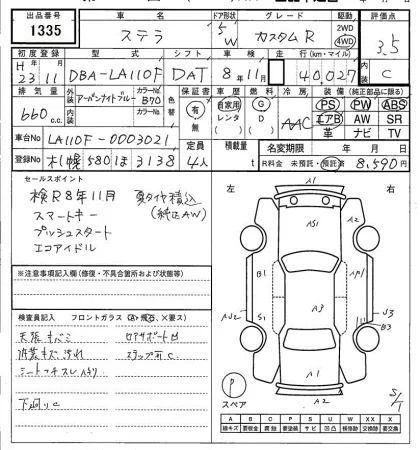 出品番号 車名 ドア形状 グレード 駆動 評価点
1335 ステラ 5 W カスタムR 2WD 4WD 3.5
初度登録 型式 シフト 車検 走行(km・マイル) 内装
H 23 11 DBA-LA110F DAT 8年11月 40,027 C
排気量 外装 カラーNo. 色替 保証書 車歴 燃料 冷房 装備(純正部品に限る)
660 cc アーバンナイトブルー B70 有 無 自家用 レンタ G D AAC PS PW ABS
内装 カラーNo. エアB AW SR
革 ナビ TV
車台No LA110F-0003021 定員 積載量 名変期限 年 月 日
登録No 札幌 580 ほ 3138 4人 t R料金 未預託・預託済 8,590円
セールスポイント
検R8年11月 夏タイヤ積込
スマートキー (純正AW)
プッシュスタート
エコアイドル
※注意事項記入欄(修復・不具合箇所および状態等)
検査員記入 フロントガラス(A・飛石、×要ス)
天張キバミ ロアサポートU
内装キズ汚れ ステップ可C
シートコゲスレハリ
下廻りC
左 右
A1
AS1
A2
B1
AP1
A3
AJ2 S1
J3
B3
A1
A2
P
スペア
S/T
A B C P S U W X XX
線キズ 要板金 腐食 要塗装 サビ 凹凸 補修跡 要交換 交換済